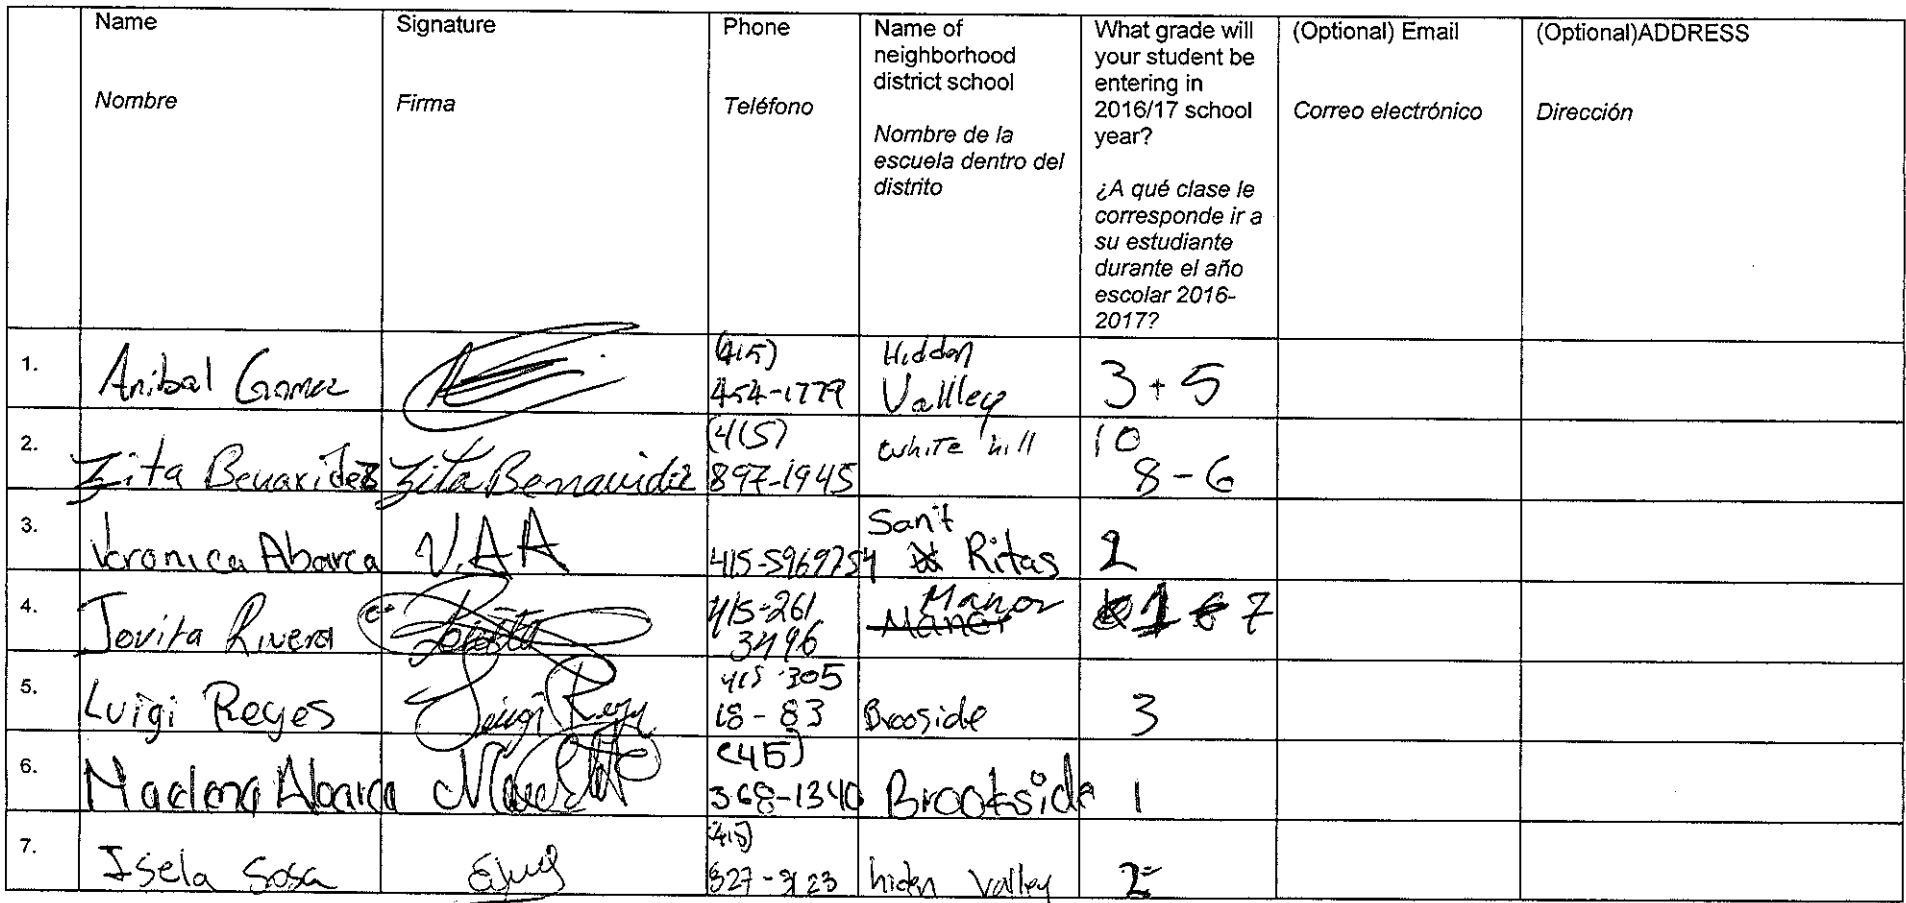 Name
Nombre
Signature
Firma
Phone
Teléfono
Name of
neighborhood
district school
Nombre de la
escuela dentro del
distrito
What grade will
your student be
entering in
2016/17 school
year?
¿A qué clase le
corresponde ir a
su estudiante
durante el año
escolar 2016-
2017?
(Optional) Email
Correo electrónico
(Optional)ADDRESS
Dirección
1.
Anibal Gomez
(415)
454-1779
Hidden
Vallley
3 + 5
2.
Zita Benavidez
Zita Bennavidez
(415)
897-1945
White hill
10
8 - 6
3.
Veronica Abarca
V.AA
415-5969754
Sant
Ritas
2
4.
Jovita Rivera
415-261
3496
Manor
Maner
1 6 7
5.
Luigi Reyes
Luigi Rey
415 305
18 - 83
Brooside
3
6.
Maclena Abarca
(415)
368-1340
Brookside
1
7.
Isela Sosa
(415)
827 - 3123
hiden Valley
2